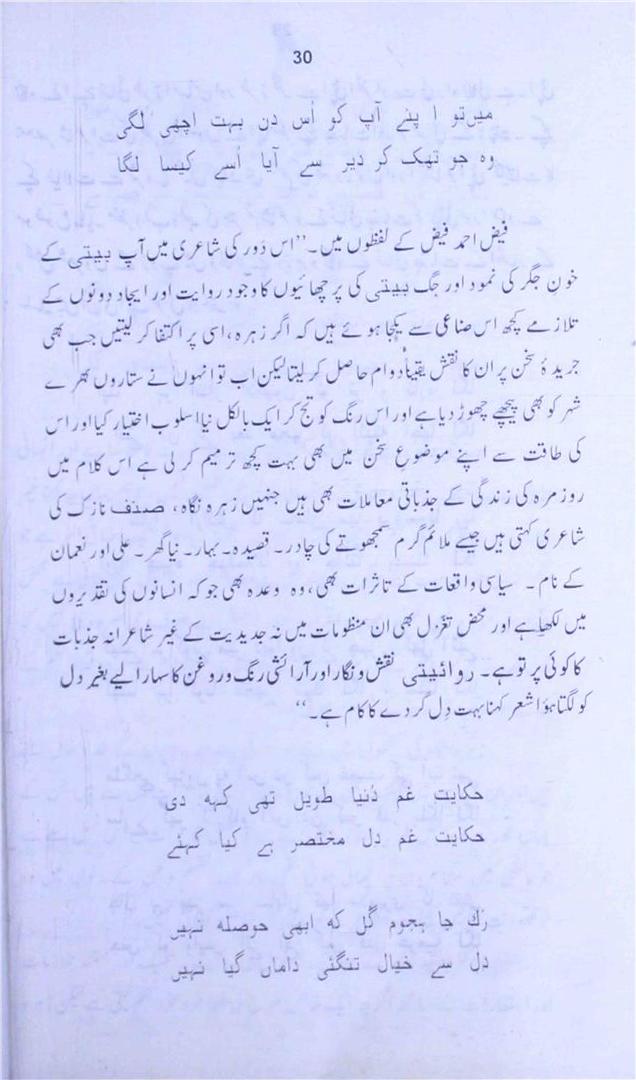 30
میں تو ا پنے آپ کو اُس دن بہت اچھی لگی
وہ جو تھک کر دیر سے آیا اُسے کیسا لگا
فیض احمد فیض کے لفظوں میں۔”اس دَور کی شاعری میں آپ بیتی کے
خونِ جگر کی نمود اور جگ بیتی کی پرچھائیوں کا وجود روایت اور ایجاد دونوں کے
تلازمے کچھ اس صناعی سے یکجا ہوئے ہیں کہ اگر زہرہ، اسی پر اکتفا کر لیتیں جب بھی
جریدۂ سخن پر ان کا نقش یقیناً دوام حاصل کر لیتا لیکن اب تو انہوں نے ستاروں بھرے
شہر کو بھی پیچھے چھوڑ دیا ہے اور اس رنگ کو تج کر ایک بالکل نیا اسلوب اختیار کیا اور اس
کی طاقت سے اپنے موضوعِ سخن میں بھی بہت کچھ ترمیم کر لی ہے اس کلام میں
روزمرہ کی زندگی کے جذباتی معاملات بھی ہیں جنہیں زہرہ نگاہ، صنف نازک کی
شاعری کہتی ہیں جیسے ملائم گرم سمجھوتے کی چادر۔ قصیدہ۔ بہار۔ نیا گھر۔ علی اور نعمان
کے نام۔ سیاسی واقعات کے تاثرات بھی، وہ وعدہ بھی جو کہ انسانوں کی تقدیروں
میں لکھا ہے اور محض تغزل بھی ان منظومات میں نہ جدیدیت کے غیر شاعرانہ جذبات
کا کوئی پر تو ہے۔ روائیتی نقش و نگار اور آرائشی رنگ و روغن کا سہارا لیے بغیر دل
کو لگتا ہؤا شعر کہنا بہت دِل گردے کا کام ہے۔“
حکایت غم دُنیا طویل تھی کہہ دی
حکایت غم دل مختصر ہے کیا کہئے
رُک جا ہجوم گُل کہ ابھی حوصلہ نہیں
دِل سے خیال تنگئی داماں گیا نہیں